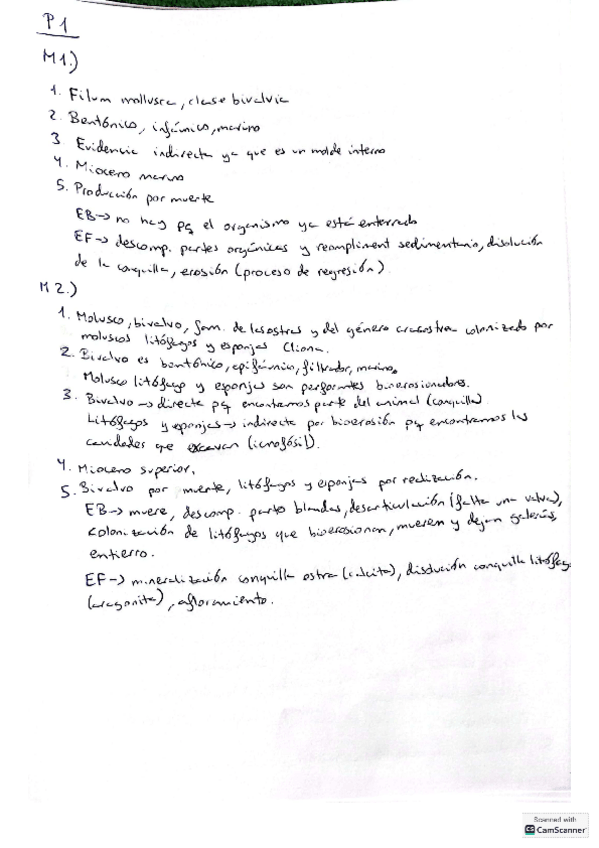 P1
M1.)
1. Filum mollusca, clase bivalvia
2. Bentónico, infáunico, marino
3 Evidencia indirecta ya que es un molde interno
4. Mioceno marino
5. Producción por muerte
EB → no hay pq el organismo ya está enterrado
EF → descomp. partes orgánicas y reompliment sedimentario, disolución
de la conquilla, erosión (proceso de regresión).
M2.)
1. Molusco, bivalvo, fam. de las ostras y del género crassostrea colonizado por
moluscos litófagos y esponjas Cliona.
2. Bivalvo es bentónico, epifáunico, filtrador, marino.
Molusco litófago y esponjas son perforantes bioerosionadores.
3. Bivalvo → directa pq encontramos parte del animal (conquilla).
Litófagos y esponjas → indirecta por bioerosión pq encontramos las
cavidades que excavan (icnofósil).
4. Mioceno superior.
5. Bivalvo por muerte, litófagos y esponjas por realización.
EB → muere, descomp. parte blandas, desarticulación (falta una valva),
colonización de litófagos que bioerosionan, mueren y dejan galerías,
entierro.
EF → mineralización conquilla ostra (calcita), disolución conquilla litófag
(aragonita), afloramiento.
Scanned with
CS CamScanner